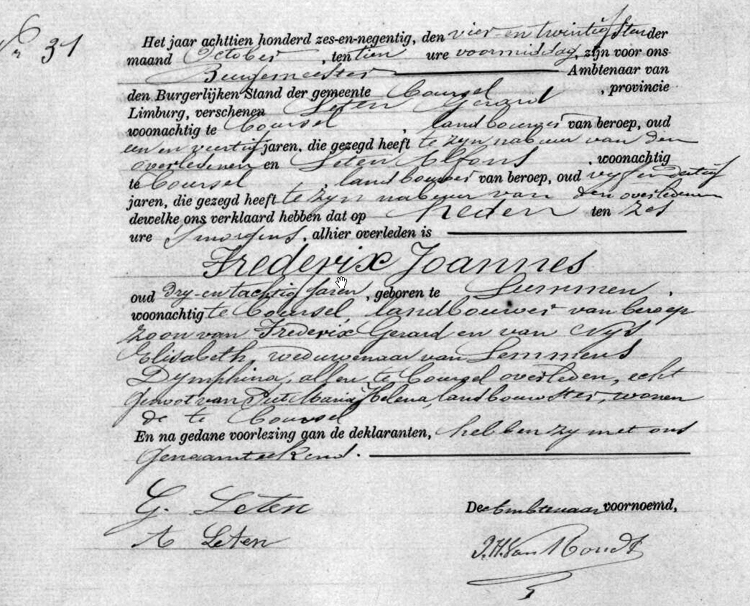 N° 31
Het jaar achttien honderd zes-en-negentig, den vier-en twintigsten der
maand October, ten tien ure voormiddag, zijn voor ons
Burgemeester Ambtenaar van
den Burgerlijken Stand der gemeente Coursel, provincie
Limburg, verschenen Leten Gerard
woonachtig te Coursel, landbouwer van beroep, oud
een en veertig jaren, die gezegd heeft te zyn nabuur van den
overledenen en Leten Alfons, woonachtig
te Coursel, landbouwer van beroep, oud vyf en dertig
jaren, die gezegd heeft te zyn nabuur van den overledenen
dewelke ons verklaard hebben dat op heden ten zes
ure s'morgens, alhier overleden is
Frederix Joannes
oud dry-en tachtig jaren, geboren te Lummen,
woonachtig te Coursel, landbouwer van beroep
zoon van Frederix Gerard en van Nys
Elisabeth, weduwenaar van Lemmens
Dymphina, allen te Coursel overleden, echt
genoot van Maria Helena, landbouwster, wonen
de te Coursel
En na gedane voorlezing aan de deklaranten, hebben zy met ons
genaamteekend.
G. Leten
A Leten
De Ambtenaar voornoemd,